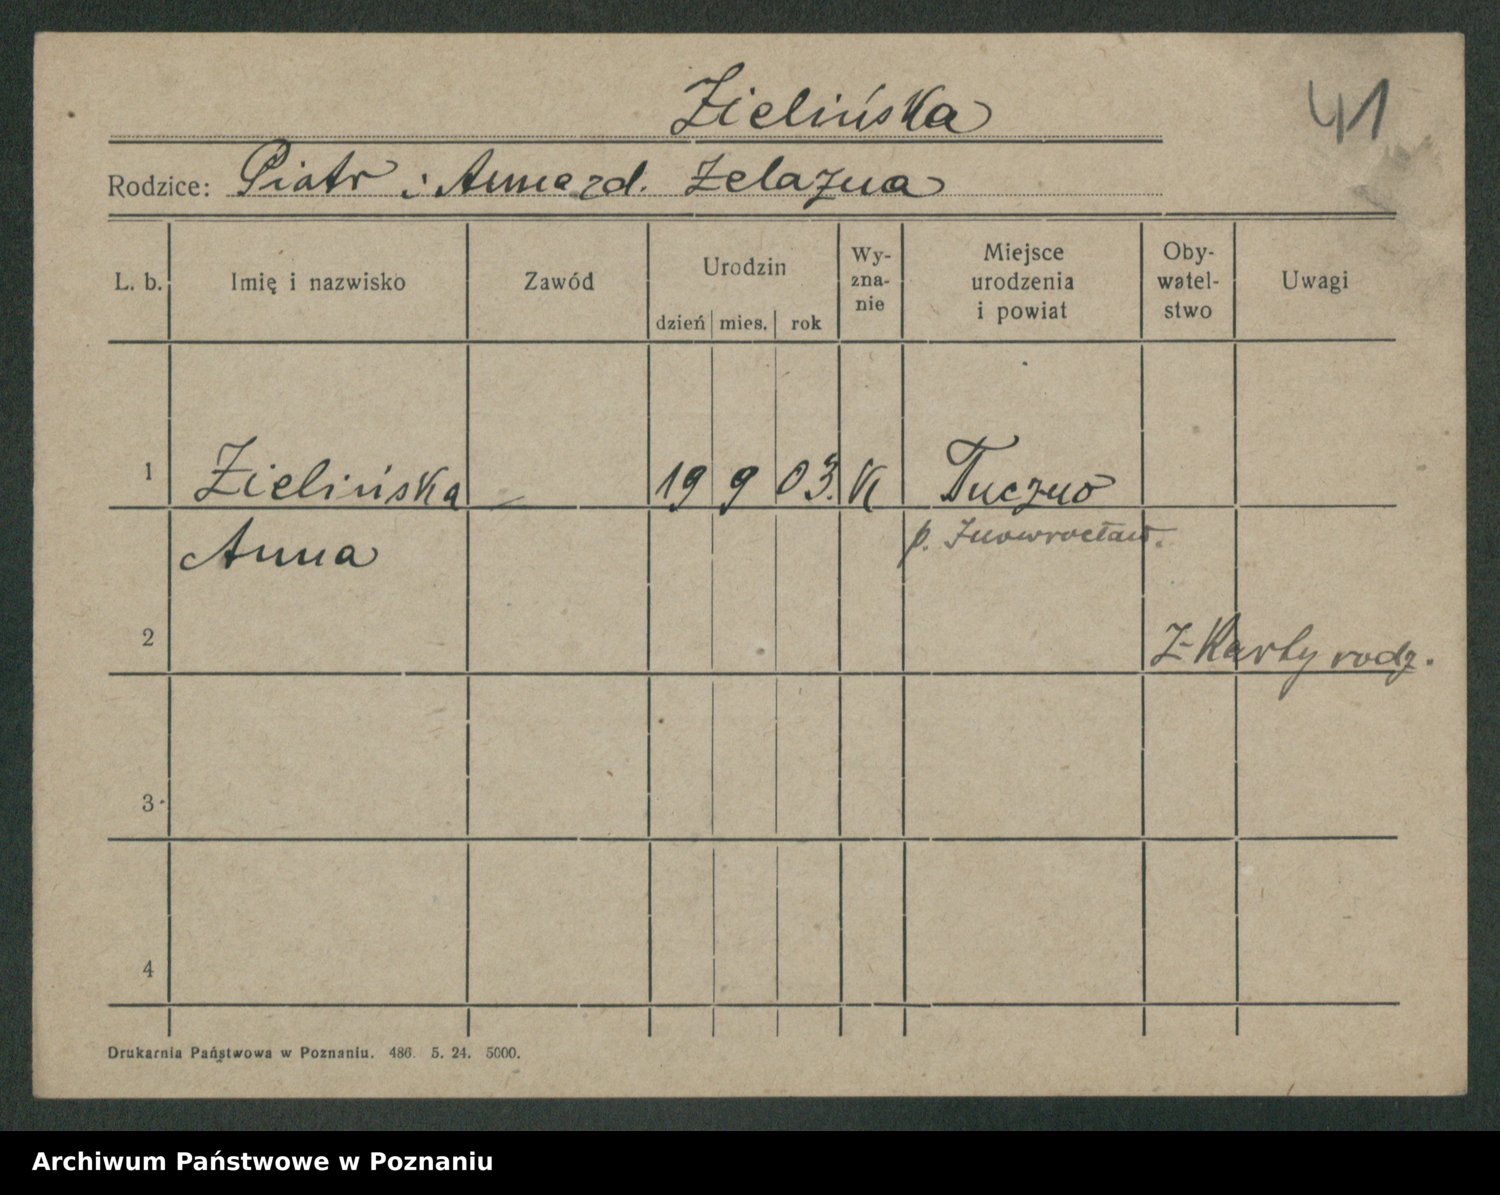 Zielińska
41
Rodzice: Piotr i Anna zd. Żelazna
L. b. Imię i nazwisko Zawód Urodzin dzień mies. rok Wy-zna-nie Miejsce urodzenia i powiat Oby-watel-stwo Uwagi
1 Zielińska — 19 9 03. K Tuczno
Anna p. Inowrocław.
2 Z Karty rodz.
3
4
Drukarnia Państwowa w Poznaniu. 486. 5. 24. 5000.
Archiwum Państwowe w Poznaniu